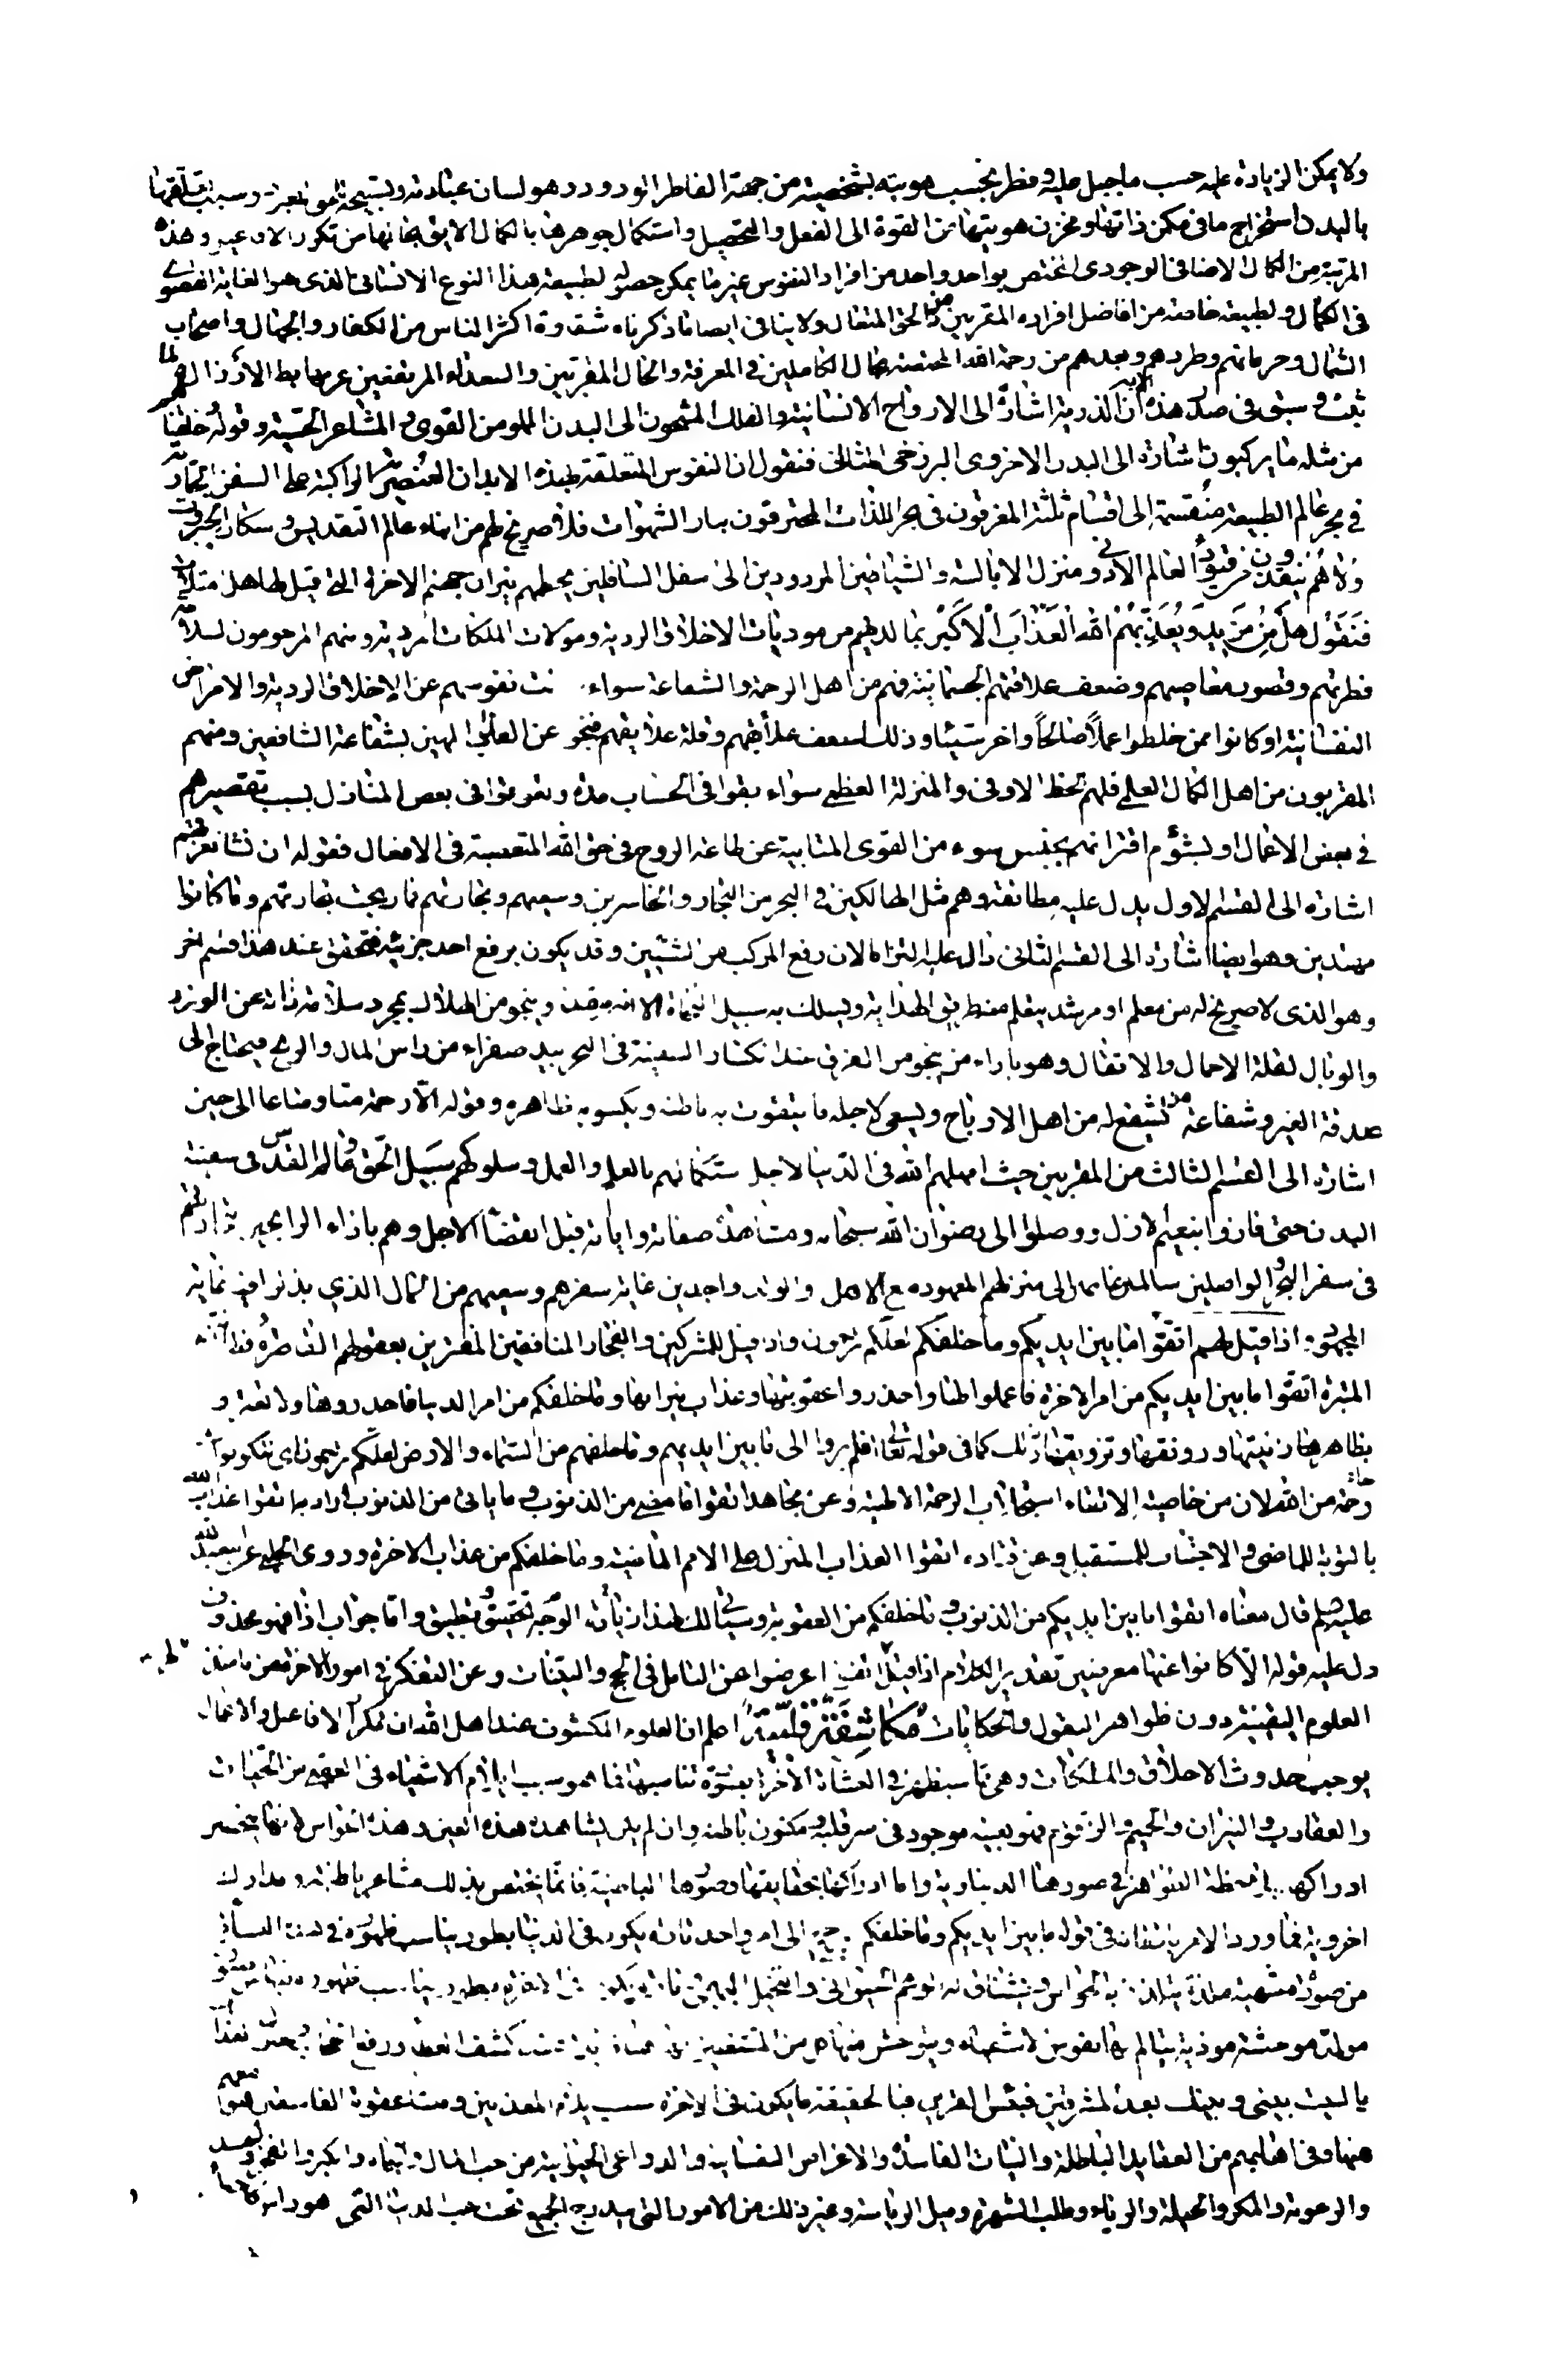 ولا يمكن الزيادة عليه حسب ما جبل عليه وفطر بحسب هويته الشخصية من جهة الفاطر الودود وهو لسان عبادته وتسبيحه وسبب تعلقها
بالبدن استخراج ما في مكمن ذاتها ومخزن هويتها من القوة الى الفعل والتحصيل واستكمال جوهرها بالكمال اللايق بها من وهذه
المرتبة من الكمال الاضافي الوجودي المختص بواحد واحد من افراد النفوس غير ما يمكن حصوله لطبيعة هذا النوع الانساني الذي هو الغاية القصوى
في الكمال ولطبيعة خاصة من افاضل افراده المقربين من الحق المتعال ولا ينافي ايضا ما ذكرناه شقاوة اكثر الناس من الكفار والجهال واصحاب
الشمال وحرمانهم وطردهم وبعدهم من رحمة الله المختصة بالكاملين في المعرفة والحال المقربين والسعداء المرتفعين عن مهابط الارذال
ثبت وسبق في صدر هذه الاية ان الذرية اشارة الى الارواح الانسانية والفلك المشحون الى البدن المملو من القوى والمشاعر الحسية وقوله خلقنا
من مثله ما يركبون اشارة الى البدن الاخروي البرزخي المثالي فنقول ان النفوس المتعلقة بهذه الابدان العنصرية الراكبة على السفن الجارية
في بحر عالم الطبيعة منقسمة الى اقسام ثلثة المغرقون في بحر اللذات المحترقون بنار الشهوات فلا صريخ لهم من ابناء عالم التقديس وسكان الجبروت
ولا هم ينقذون العالم الادنى ومنزل الابالسة والشياطين المردودين الى سفل السافلين يحطمهم نيران جهنم الاخرة التي قيل لها هل امتلات
فتقول هل من مزيد ويعذبهم الله العذاب الاكبر بما لديهم من موذيات الاخلاق الردية ومولمات الملكات المردية ومنهم المرحومون لسلامة
فطرتهم وقصور معاصيهم وضعف علاقتهم الجسمانية فهم من اهل الرحمة والشفاعة سواء نفوسهم عن الاخلاق الردية والامراض
النفسانية او كانوا ممن خلطوا عملا صالحا واخر سيئا وذلك لضعف علايقهم وقلة عوايقهم فنجو عن العذاب المهين بشفاعة الشافعين ومنهم
المقربون من اهل الكمال العلمي فلهم الحظ الاوفى والمنزلة العظمى سواء بقوا في الحساب مدة وتعوقوا في بعض المنازل بسبب تقصيرهم
في بعض الاعمال او لشؤم اقترانهم بجليس سوء من القوى المتابية عن طاعة الروح في حق الله المتعصبة في الافعال فقوله ان نشا نغرقهم
اشارة الى القسم الاول يدل عليه مطابقة وهم مثل الهالكين في البحر من التجار والخاسرين وسعيهم وتجارتهم فما ربحت تجارتهم وما كانوا
مهتدين وهو ايضا اشارة الى القسم الثاني دال عليه التزاما لان رفع المركب من الشيئين قد يكون برفع احد جزئيه فتحقق عند هذا قسم اخر
وهو الذي لا صريخ له من معلم او مرشد يتعلم منه طريق الهداية ويسلك به سبيل النجاة الا انه ينقذ وينجو من الهلاك بمجرد سلامة ذاته عن الوزر
والوبال لقلة الاحمال والاثقال وهو بازاء من ينجو من الغرق عند انكسار السفينة في البحر بيد صفراء من راس المال والربح فيحتاج الى
صدقة الغير وشفاعة من تشفع له من اهل الارباح ويسعى لاجله ما يتقوت به باطنه ويكسو به ظاهره وقوله الا رحمة منا ومتاعا الى حين
اشارة الى القسم الثالث من المقربين حيث امهلهم الله في الدنيا لاجل استكمالهم بالعلم والعمل وسلوكهم سبيل الحق وعالم القدس في سفينة
البدن حتى فازوا بنعيم الازل ووصلوا الى رضوان الله سبحانه ومشاهدة صفاته واياته قبل انقضاء الاجل وهم بازاء الرابحين
في سفر البحر الواصلين سالمين غانمين الى منزلهم المعهود مع الاهل والولد واجدين غاية سفرهم وسعيهم من المال الذي
اذا قيل لهم اتقوا ما بين ايديكم وما خلفكم لعلكم ترحمون واذا قيل للمشركين والفجار المنافقين المغترين بعقولهم القاصرة
اتقوا ما بين ايديكم من امر الاخرة فاعملوا لها واحذروا عقوبتها وعذاب نيرانها وما خلفكم من امر الدنيا فاحذروها ولا تغتروا
بظاهرها وزينتها ورونقها وتزويقها كما في قوله تعالى افلم يروا الى ما بين ايديهم وما خلفهم من السماء والارض لعلكم ترحمون اي لتكونوا
رحمة من الله لان من خاصية الاتقاء استجلاب الرحمة الالهية وعن مجاهد اتقوا ما مضى من الذنوب وما ياتي من الذنوب اراد به اتقوا عذاب الله
بالتوبة للماضي والاجتناب للمستقبل وعن قتادة اتقوا العذاب المنزل على الامم الماضية وما خلفكم من عذاب الاخرة وروى الحلبي عن ابي عبد الله
عليه السلم قال معناه اتقوا ما بين ايديكم من الذنوب وما خلفكم من العقوبة وسياتي لك لهذا زيادة تحقيق وتطبيق واما جواب اذا فهو محذوف
دل عليه قوله الا كانوا عنها معرضين تقدير الكلام اذا قيل اتقوا اعرضوا عن التامل في الحجج والبينات وعن التفكر في امور الاخرة
العلوم اليقينية دون ظواهر النقول والحكايات اعلم ان المعلوم المكشوف عند اهل الله ان تكرر الافاعيل والاعمال
يوجب حدوث الاخلاق والملكات وهي مما سيظهر في النشاة الاخرة بصورة تناسبها الاشياء في من الحيات
والعقارب والنيران والحميم والزقوم فهو بعينه موجود في سر قلبه ومكنون باطنه وان لم يشاهده هذه العين وهذه الحواس لانها ينحصر
ادراكها الظواهر في صورها الدنياوية واما ادراكها بحقايقها وصورها الباطنية فانما يختص بذلك مشاعر باطنية ومدارك
اخروية فما ورد الامر باتقائه في قوله ما بين ايديكم وما خلفكم الى امر واحد فانه يكون في الدنيا بطور يناسب ظهوره في هذه النشاة
من صورة مشهية ملذة بها الحواس ويشتاق له الوهم الحيواني والتخيل البهيمي
مولمة موحشة موذية يتالم بها النفوس ويتوحش منها كشف الغطاء ورفع الحجاب
يا ليت بيني وبينك بعد المشرقين فبئس القرين فبالحقيقة ما يكون في الاخرة سبب المعذبين ومنشا عقوبة الفاسقين
منها وفي اهاليهم من العقايد الباطلة والنيات الفاسدة والاغراض النفسانية والدواعي الحيوانية من حب المال والجاه والكبر
والرعونة والمكر والحيلة والرياء وطلب الشهرة وميل الرياسة وغير ذلك من الامور التي يندرج الجميع تحت حب الدنيا التي هو راس